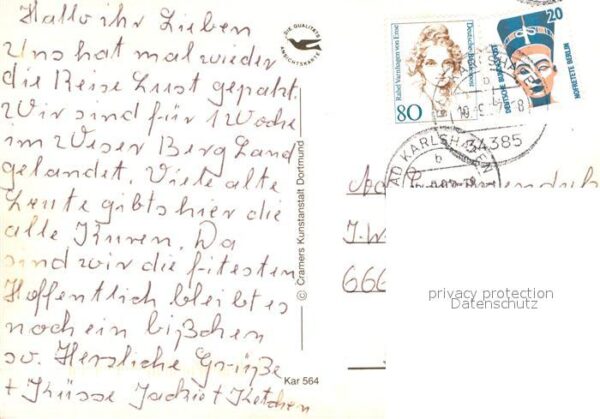 Hallo ihr Lieben
Uns hat mal wieder
die Reise Lust gepakt.
Wir sind für 1 Woche
im Weser Berg Land
gelandet. Viele alte
Leute gibts hier die
alle Kuren. Da
sind wir die fitesten
Hoffentlich bleibt es
noch ein bißchen
so. Herzliche Grüße
+ Küsse Jackie +
DIE QUALITÄTS
ANSICHTSKARTE
© Cramers Kunstanstalt Dortmund
Kar 564
Rahel Varnhagen von Ense
Deutsche Bundespost
80
20
DEUTSCHE BUNDESPOST
NOFRETETE BERLIN
b
34385
BAD KARLSHAFEN
b
J.W
666
privacy protection
Datenschutz